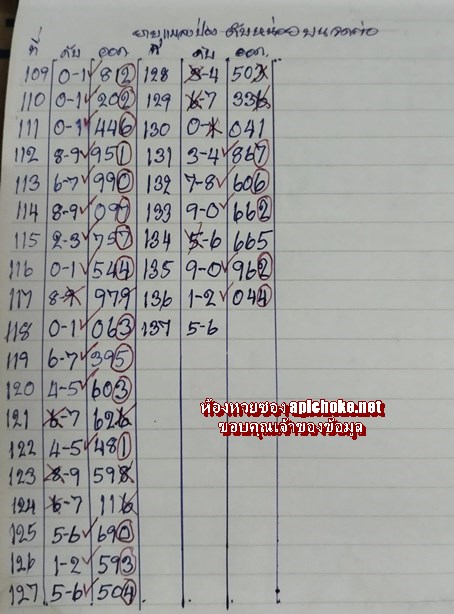 ที่ ดับ ออก. ที่ ดับ ออก.
109 0-1 812 128 8-4 503
110 0-1 202 129 6-7 336
111 0-1 446 130 0-1 041
112 8-9 951 131 3-4 867
113 6-7 990 132 7-8 606
114 8-9 099 133 9-0 662
115 2-3 757 134 5-6 665
116 0-1 544 135 9-0 962
117 8-9 979 136 1-2 044
118 0-1 063 137 5-6
119 6-7 395
120 4-5 603
121 6-7 626
122 4-5 481
123 8-9 598
124 6-7 116
125 5-6 690
126 1-2 593
127 5-6 504
ห้องหวยซอง apichoke.net
ขอบคุณเจ้าของข้อมูล